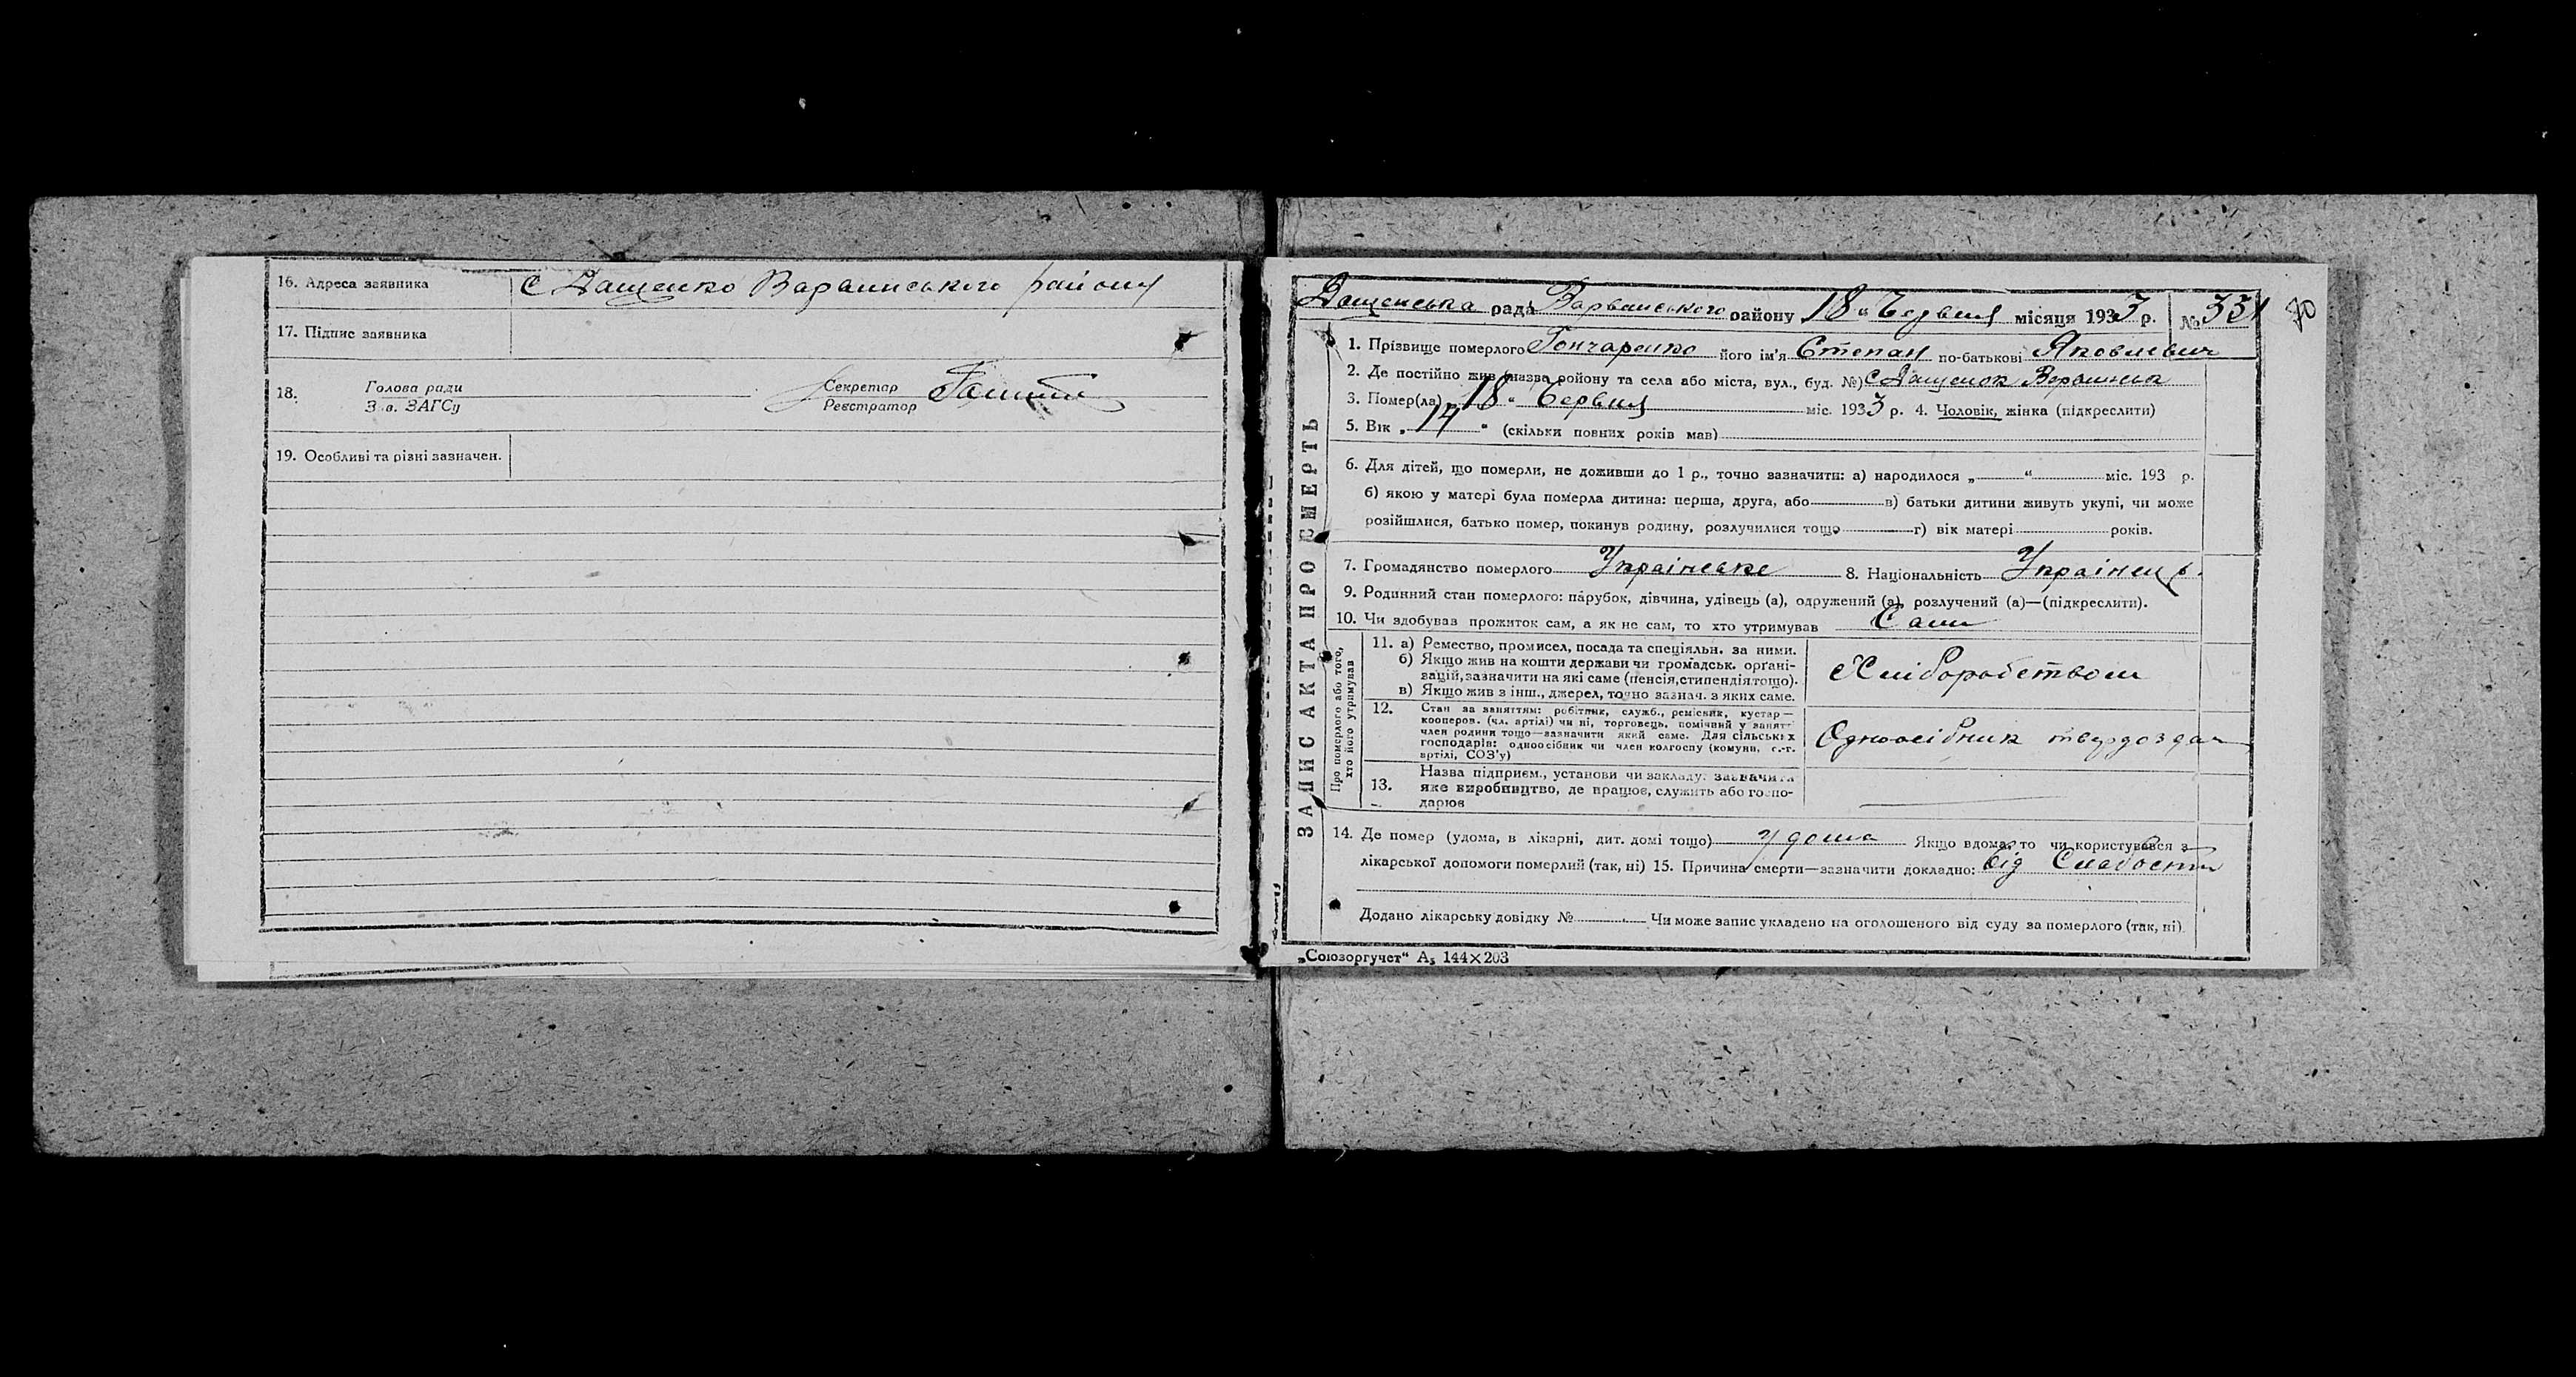 16. Адреса заявника С Дащенко Варвинського району
17. Підпис заявника
18. Голова ради Секретар
З.в. ЗАГСу Реєстратор
19. Особливі та різні зазначен.
Дащенська рада Варвинського району 18 " Червня місяця 1933 р. № 331
70
ЗАПИС АКТА ПРО СМЕРТЬ
1. Прізвище померлого Гончаренко його ім'я Степан по-батькові Яковлевич
2. Де постійно жив (назва району та села або міста, вул., буд. №) С Дащенок Варвинськ
3. Помер(ла) „ 18 " Червня міс. 1933 р. 4. Чоловік, жінка (підкреслити)
5. Вік „ 14 " (скільки повних років мав)
6. Для дітей, що померли, не доживши до 1 р., точно зазначити: а) народилося „ " міс. 193 р.
б) якою у матері була померла дитина: перша, друга, або в) батьки дитини живуть укупі, чи може
розійшлися, батько помер, покинув родину, розлучилися тощо г) вік матері років.
7. Громадянство померлого Українське 8. Національність Українец
9. Родинний стан померлого: парубок, дівчина, удівець (а), одружений (а), розлучений (а)—(підкреслити).
10. Чи здобував прожиток сам, а як не сам, то хто утримував Сам
Про померлого або того, хто його утримував
11. а) Ремество, промисел, посада та спеціяльн. за ними.
б) Якщо жив на кошти держави чи громадськ. органі-
зацій, зазначити на які саме (пенсія, стипендія тощо).
в) Якщо жив з інш., джерел, точно зазнач. з яких саме.
Хліборобством
12. Стан за заняттям: робітник, служб., ремісник, кустар—
кооперов. (чл. артілі) чи ні, торговець, помічний у занятт
член родини тощо—зазначити який саме. Для сільських
господарів: одноосібник чи член колгоспу (комуни, с.-г.
артілі, СОЗ'у)
Одноосібник твердоздач
13. Назва підприєм., установи чи закладу: зазначити
яке виробництво, де працює, служить або госпо-
дарює
14. Де помер (удома, в лікарні, дит. домі тощо) у дома Якщо вдома, то чи користувався з
лікарської допомоги померлий (так, ні) 15. Причина смерти—зазначити докладно: від Слабости
Додано лікарську довідку № Чи може запис укладено на оголошеного від суду за померлого (так, ні)
„Союзоргучет" А₅ 144×203